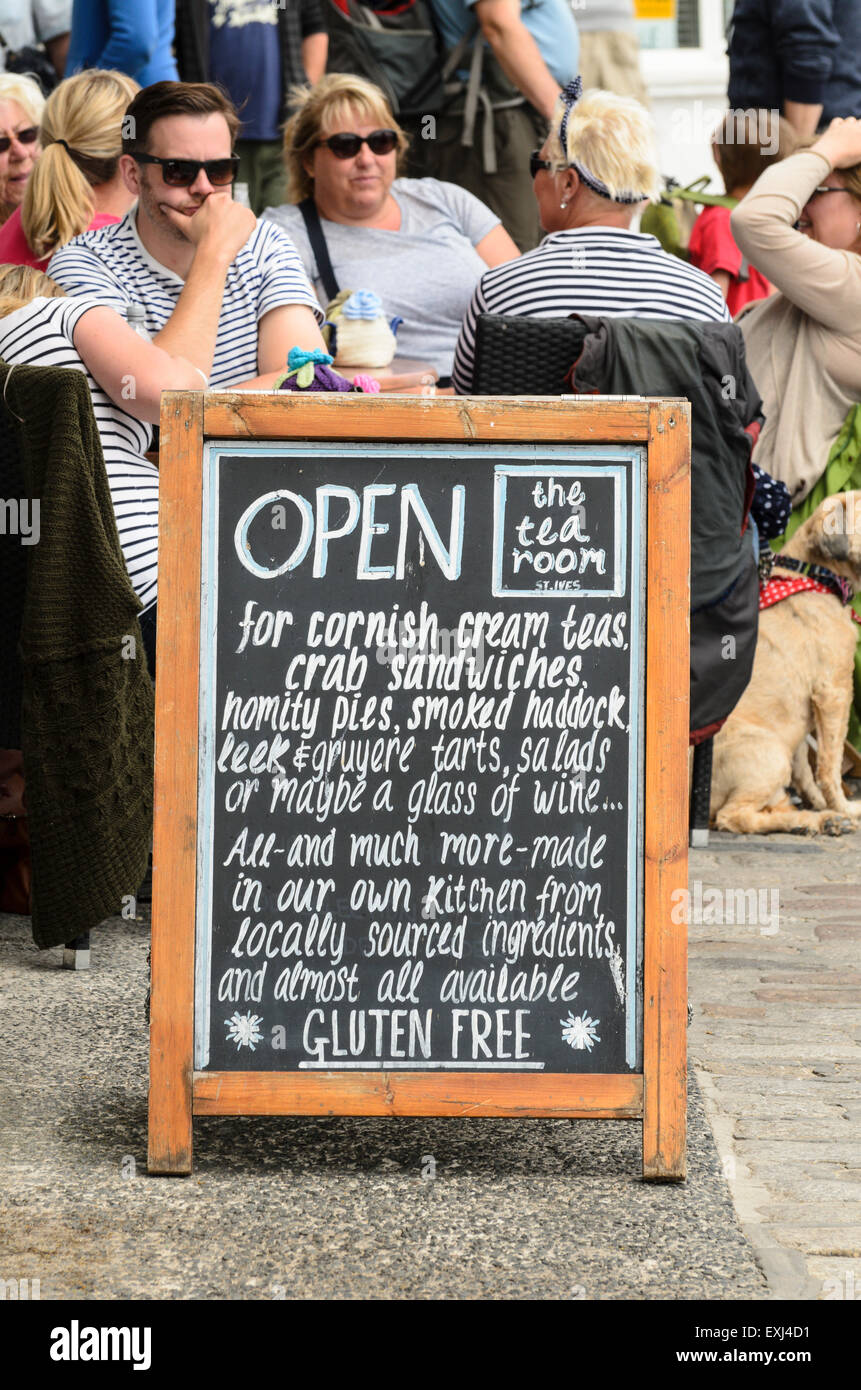 OPEN
the
tea
room
ST. IVES
for cornish cream teas,
crab sandwiches,
homity pies, smoked haddock,
leek & gruyere tarts, salads
or maybe a glass of wine...
All-and much more-made
in our own kitchen from
locally sourced ingredients
and almost all available
GLUTEN FREE
alamy
alamy
Image ID: EXJ4D1
www.alamy.com